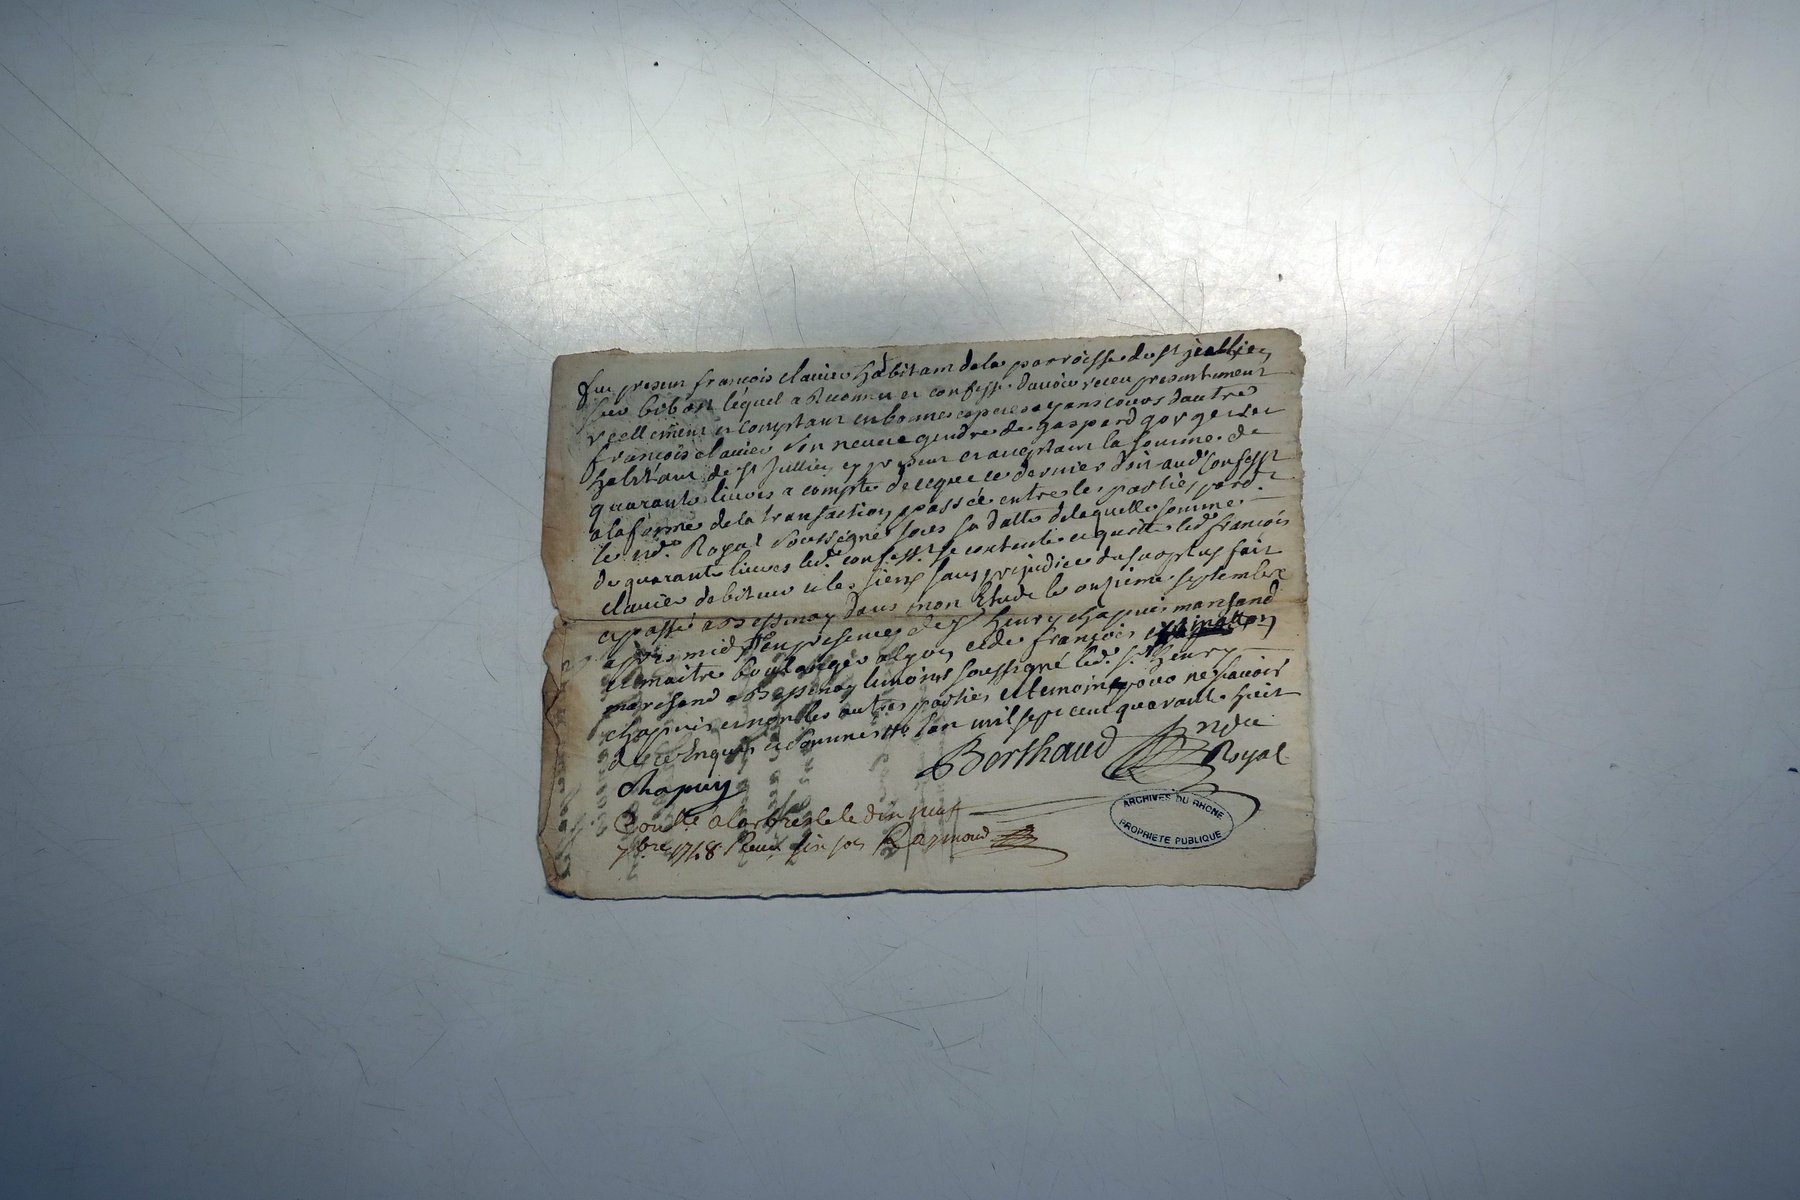 fut present françois clavier habitant de la parroisse de st jullien
sur bibost lequel a Reconnu et confessé d'avoir receu presentement
reellement et comptant en bonnes especes ayans cours d'autre
françois clavier son neveu gendre de gaspard gorgeret
habitant de st Jullien cy present et acceptant la somme de
quarante livres a compte de ce que ce dernier doit aud. confesst
a la forme de la transaction passée entre les parties pard.t
le nd.re Royal soussigné sous sa datte de laquelle somme
de quarante livres led. confess.t se contente et quitte led. françois
clavier debiteur et les siens sans prejudice du surplus fait
et passé a Bessenay dans mon Etude le onzieme septembre
apres midy en presence de sr henry chapuis marchand
et maitre boulanger a lyon et de françois
marchand a Bessenay temoins soussigné led. sr. henry
chapuis et non les autres parties et temoin pour ne sçavoir
de ce Enquis et sommés l'an mil sept cent quarante huit
Berthaud nd.re
Royal
chapuis
Con.lé a larbresle le dix neuf
7bre 1748 Reçu six sols Raymond
ARCHIVES DU RHONE
PROPRIETE PUBLIQUE